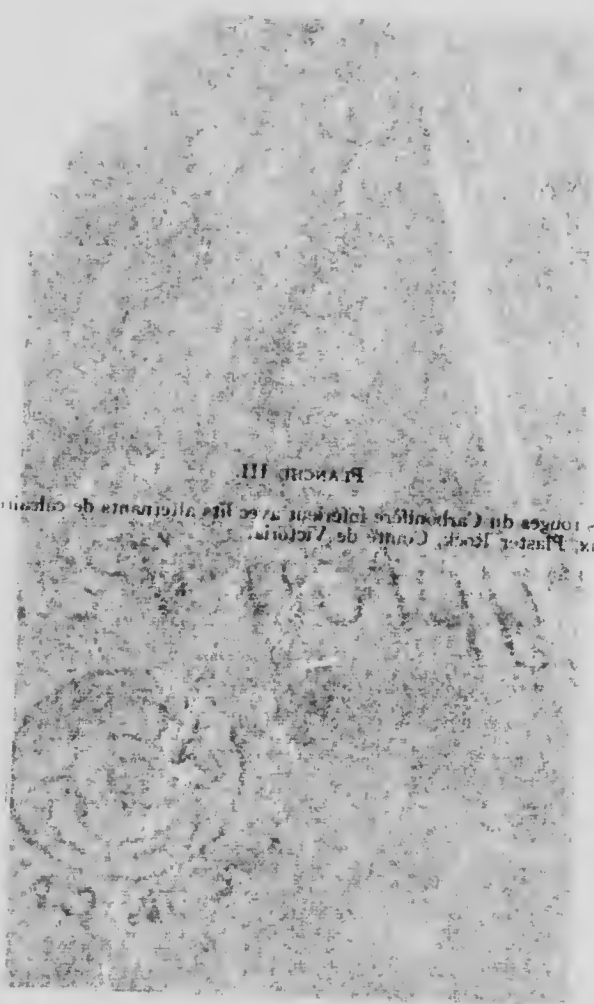 PLANCHE III.
rouges du Carbonifère inférieur avec lits alternants de
Plaster Rock, Comté de Victoria.